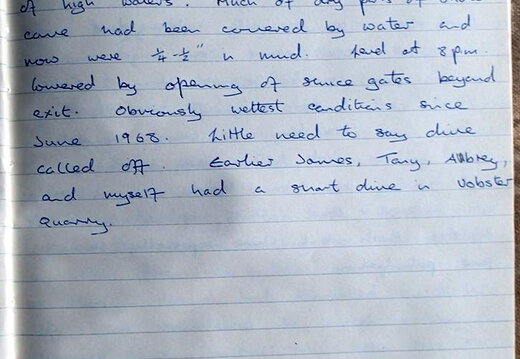 of high waters. Much of dry parts of
cave had been covered by water and
now were ¼-½" in mud. Level at 8pm.
lowered by opening of sluice gates beyond
exit. Obviously wettest conditions since
June 1968. Little need to say dive
called off. Earlier James, Tony, Aubrey,
and myself had a short dive in Vobster
Quarry.